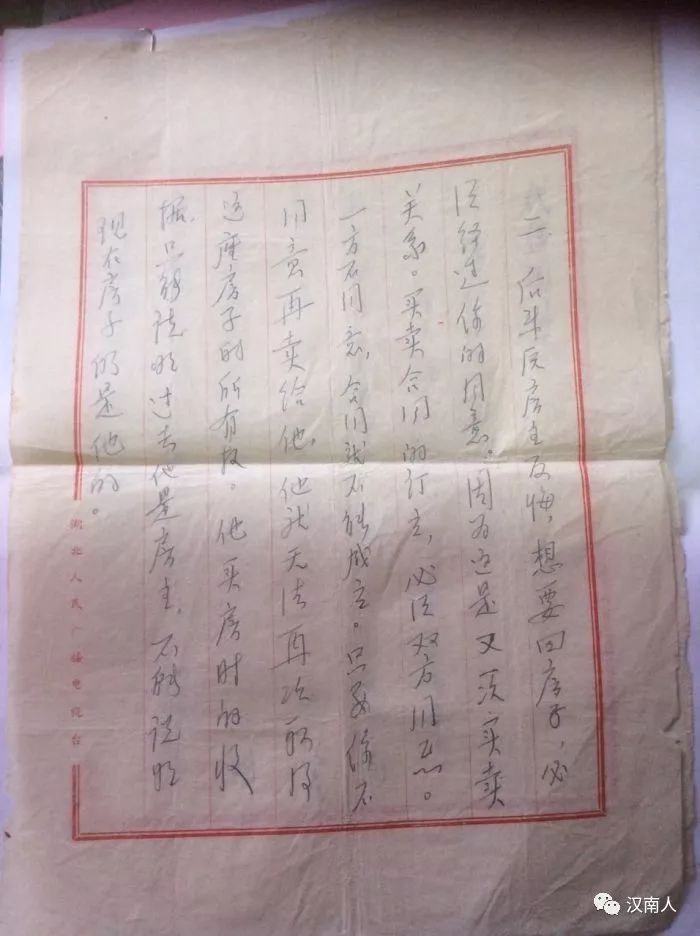 二、后来原房主反悔，想要回房子，必
须经过你的同意。因为这是又一项买卖
关系。买卖合同的订立，必须双方同意。
一方不同意，合同就不能成立。只要你不
同意再卖给他，他就无法再次取得
这座房子的所有权。他买房时的收
据，只能说明过去他是房主，不能说明
现在房子仍是他的。
湖北人民广播电视台
汉南人